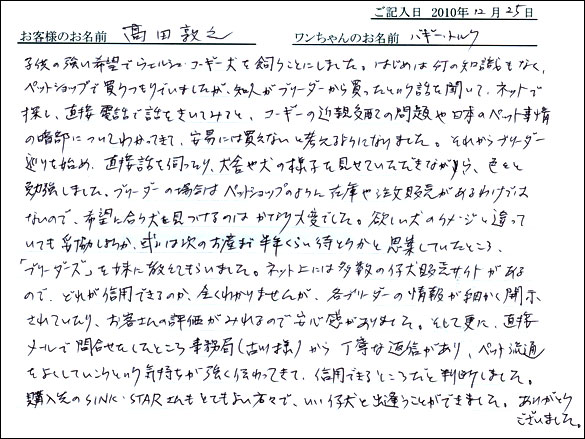 ご記入日 2010年12月25日
お客様のお名前 髙田敦之 ワンちゃんのお名前 バギー・トルク
子供の強い希望でウェルシュ・コーギー犬を飼うことにしました。はじめは何の知識もなく、
ペットショップで買うつもりでいましたが、知人がブリーダーから買ったという話を聞いて、ネットで
探し、直接電話で話をきいてみると、コーギーの近親交配の問題や日本のペット事情
の暗部についてわかってきて、安易には買えないと考えるようになりました。それからブリーダー
巡りを始め、直接話を伺ったり、犬舎や犬の様子を見せていただきながら、色々と
勉強しました。ブリーダーの場合はペットショップのように在庫や注文販売があるわけでは
ないので、希望に合う犬を見つけるのはかなり大変でした。欲しい犬のイメージと違って
いても妥協しようか、或いは次のお産まで半年くらい待とうかと思案していたところ、
「ブリーダーズ」を妹に教えてもらいました。ネット上には多数の仔犬販売サイトがある
ので、どれが信用できるのか、全くわかりませんが、各ブリーダーの情報が細かく開示
されていたり、お客さんの評価がみれるので安心感がありました。そして更に、直接
メールで問合せをしたところ事務局(古川様)から丁寧な返信があり、ペット流通
をよくしていこうという気持ちが強く伝わってきて、信用できるところだと判断しました。
購入先のSINK・STARさんもとてもよい方々で、いい仔犬と出逢うことができました。ありがとう
ございました。